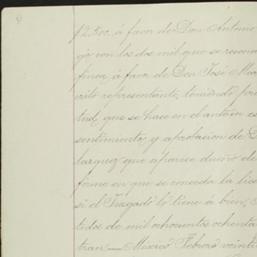 $2.500, á favor de Don Antonio
jo con los dos mil que se recono
finca, á favor de Don José Mar
cito representante, teniendo pre
tud, que se hace en el anterior es
sentimiento y aprobacion de D
larquez que aparece dueño de
forme en que se conceda la lice
si el Juzgado lo tiene á bien,
tidos de mil ochocientos ochenta
tran.— Marcos Febrero veinti